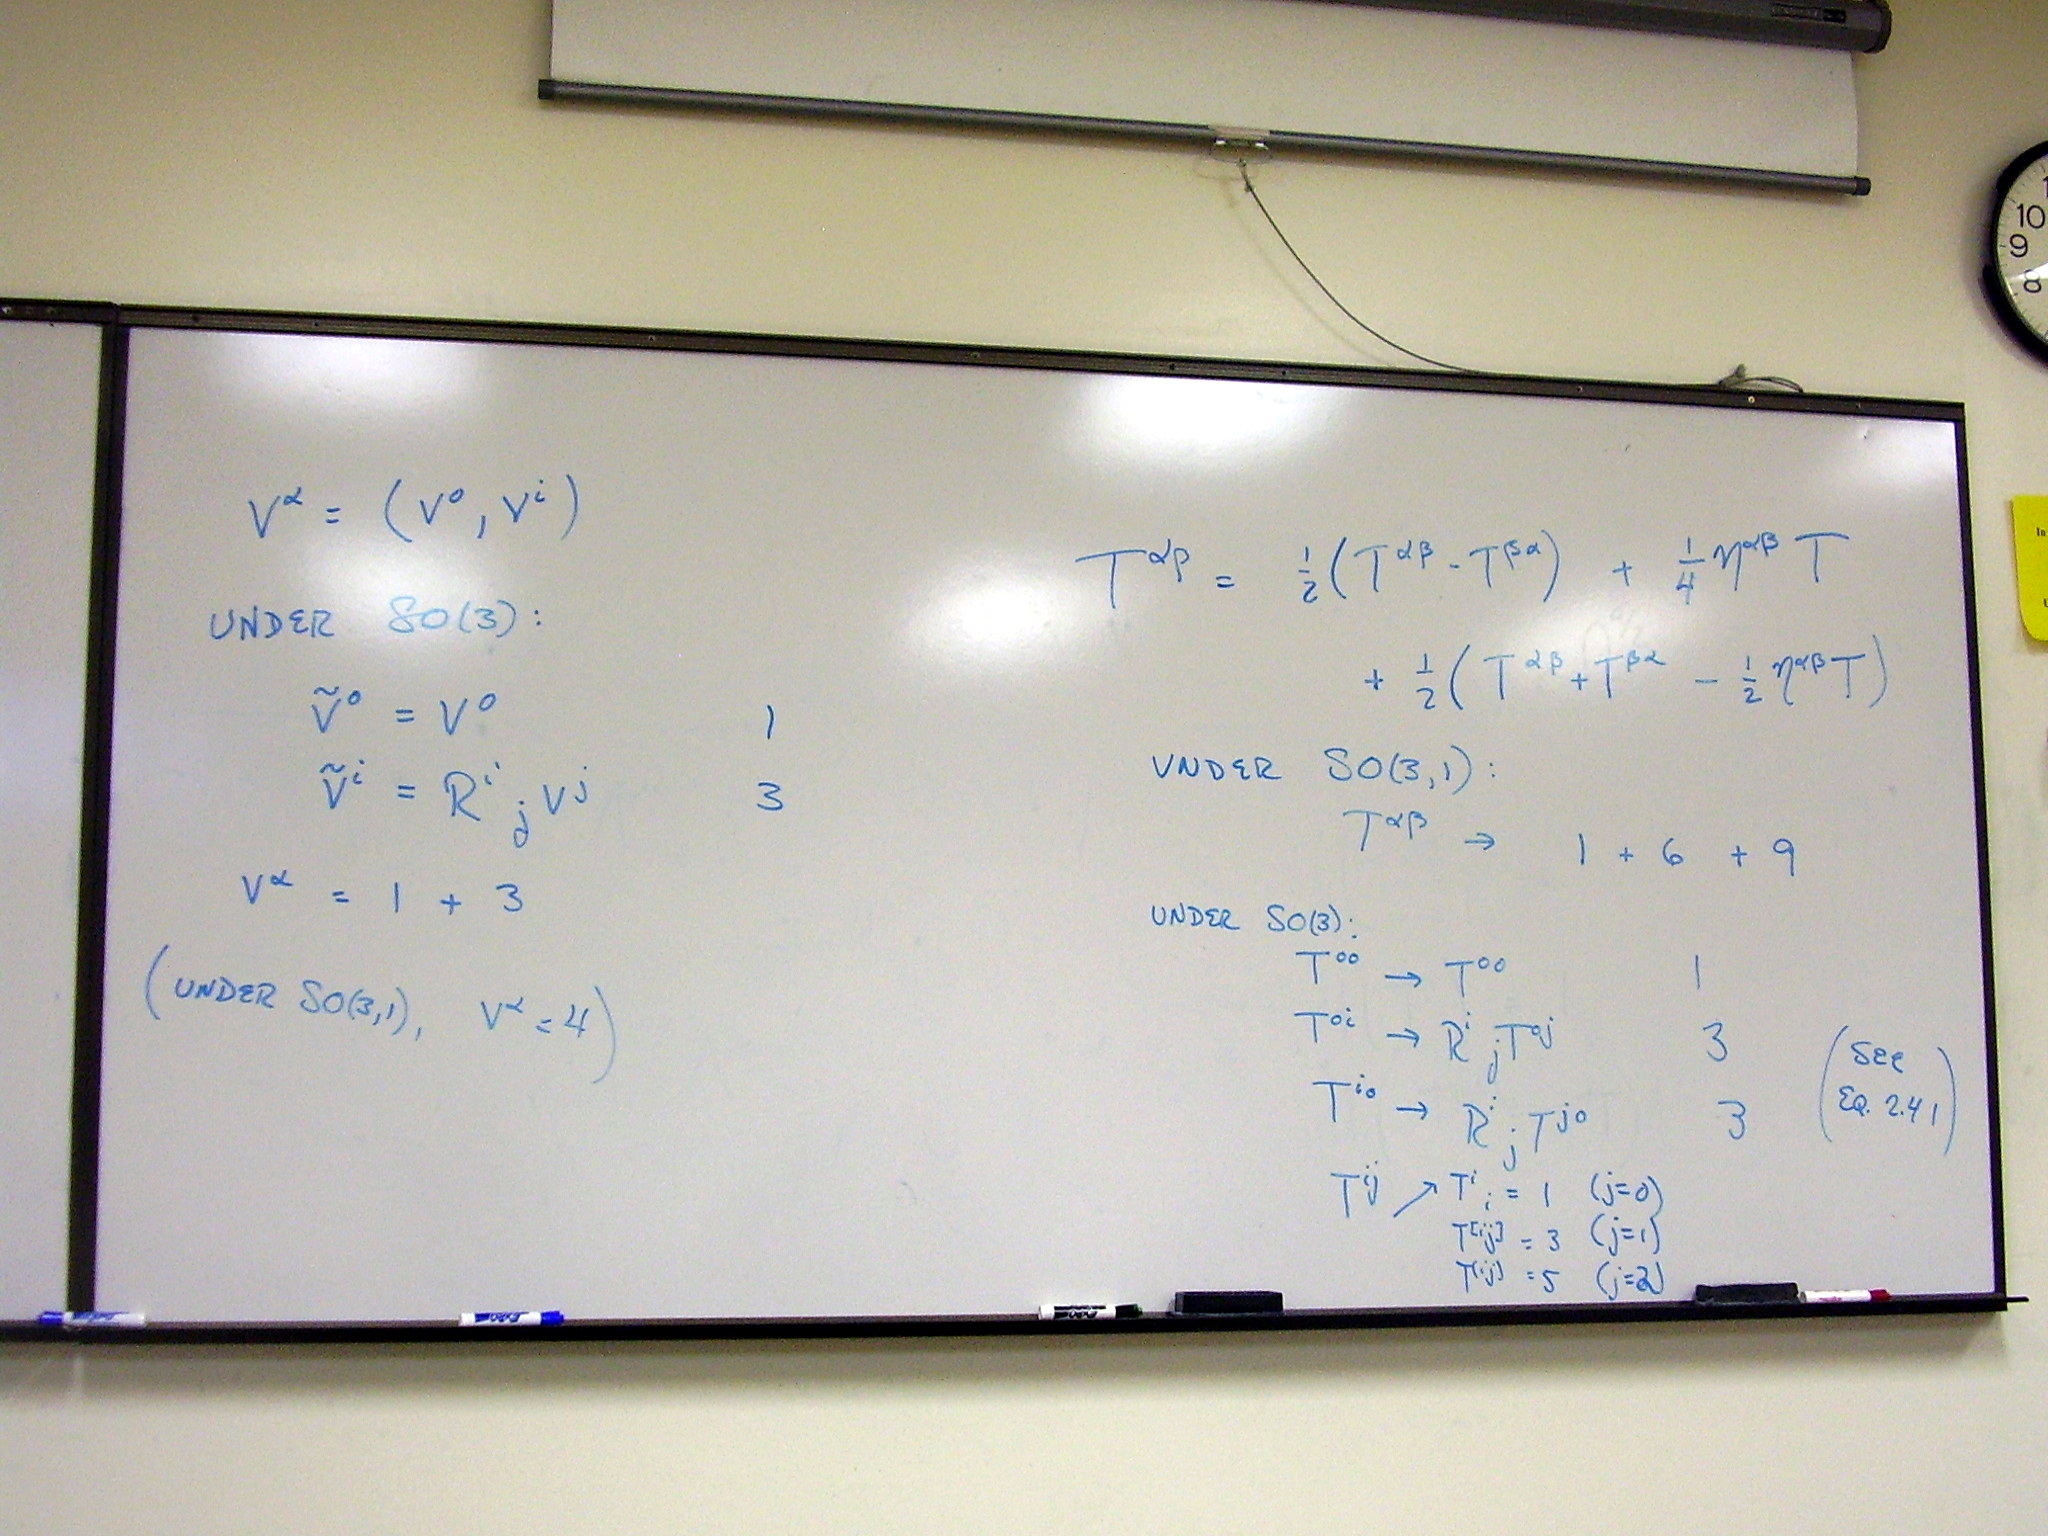 V^α = (V^0, V^i)
UNDER SO(3):
Ṽ^0 = V^0 1
Ṽ^i = R^i_j V^j 3
V^α = 1 + 3
(UNDER SO(3,1), V^α = 4)
T^αβ = 1/2 (T^αβ - T^βα) + 1/4 η^αβ T
+ 1/2 (T^αβ + T^βα - 1/2 η^αβ T)
UNDER SO(3,1):
T^αβ → 1 + 6 + 9
UNDER SO(3):
T^00 → T^00 1
T^0i → R^i_j T^0j 3
T^i0 → R^i_j T^j0 3
(SEE
EQ. 2.41)
T^ij ↗ T^i_i = 1 (j=0)
T^[ij] = 3 (j=1)
T^(ij) = 5 (j=2)
10
9
8